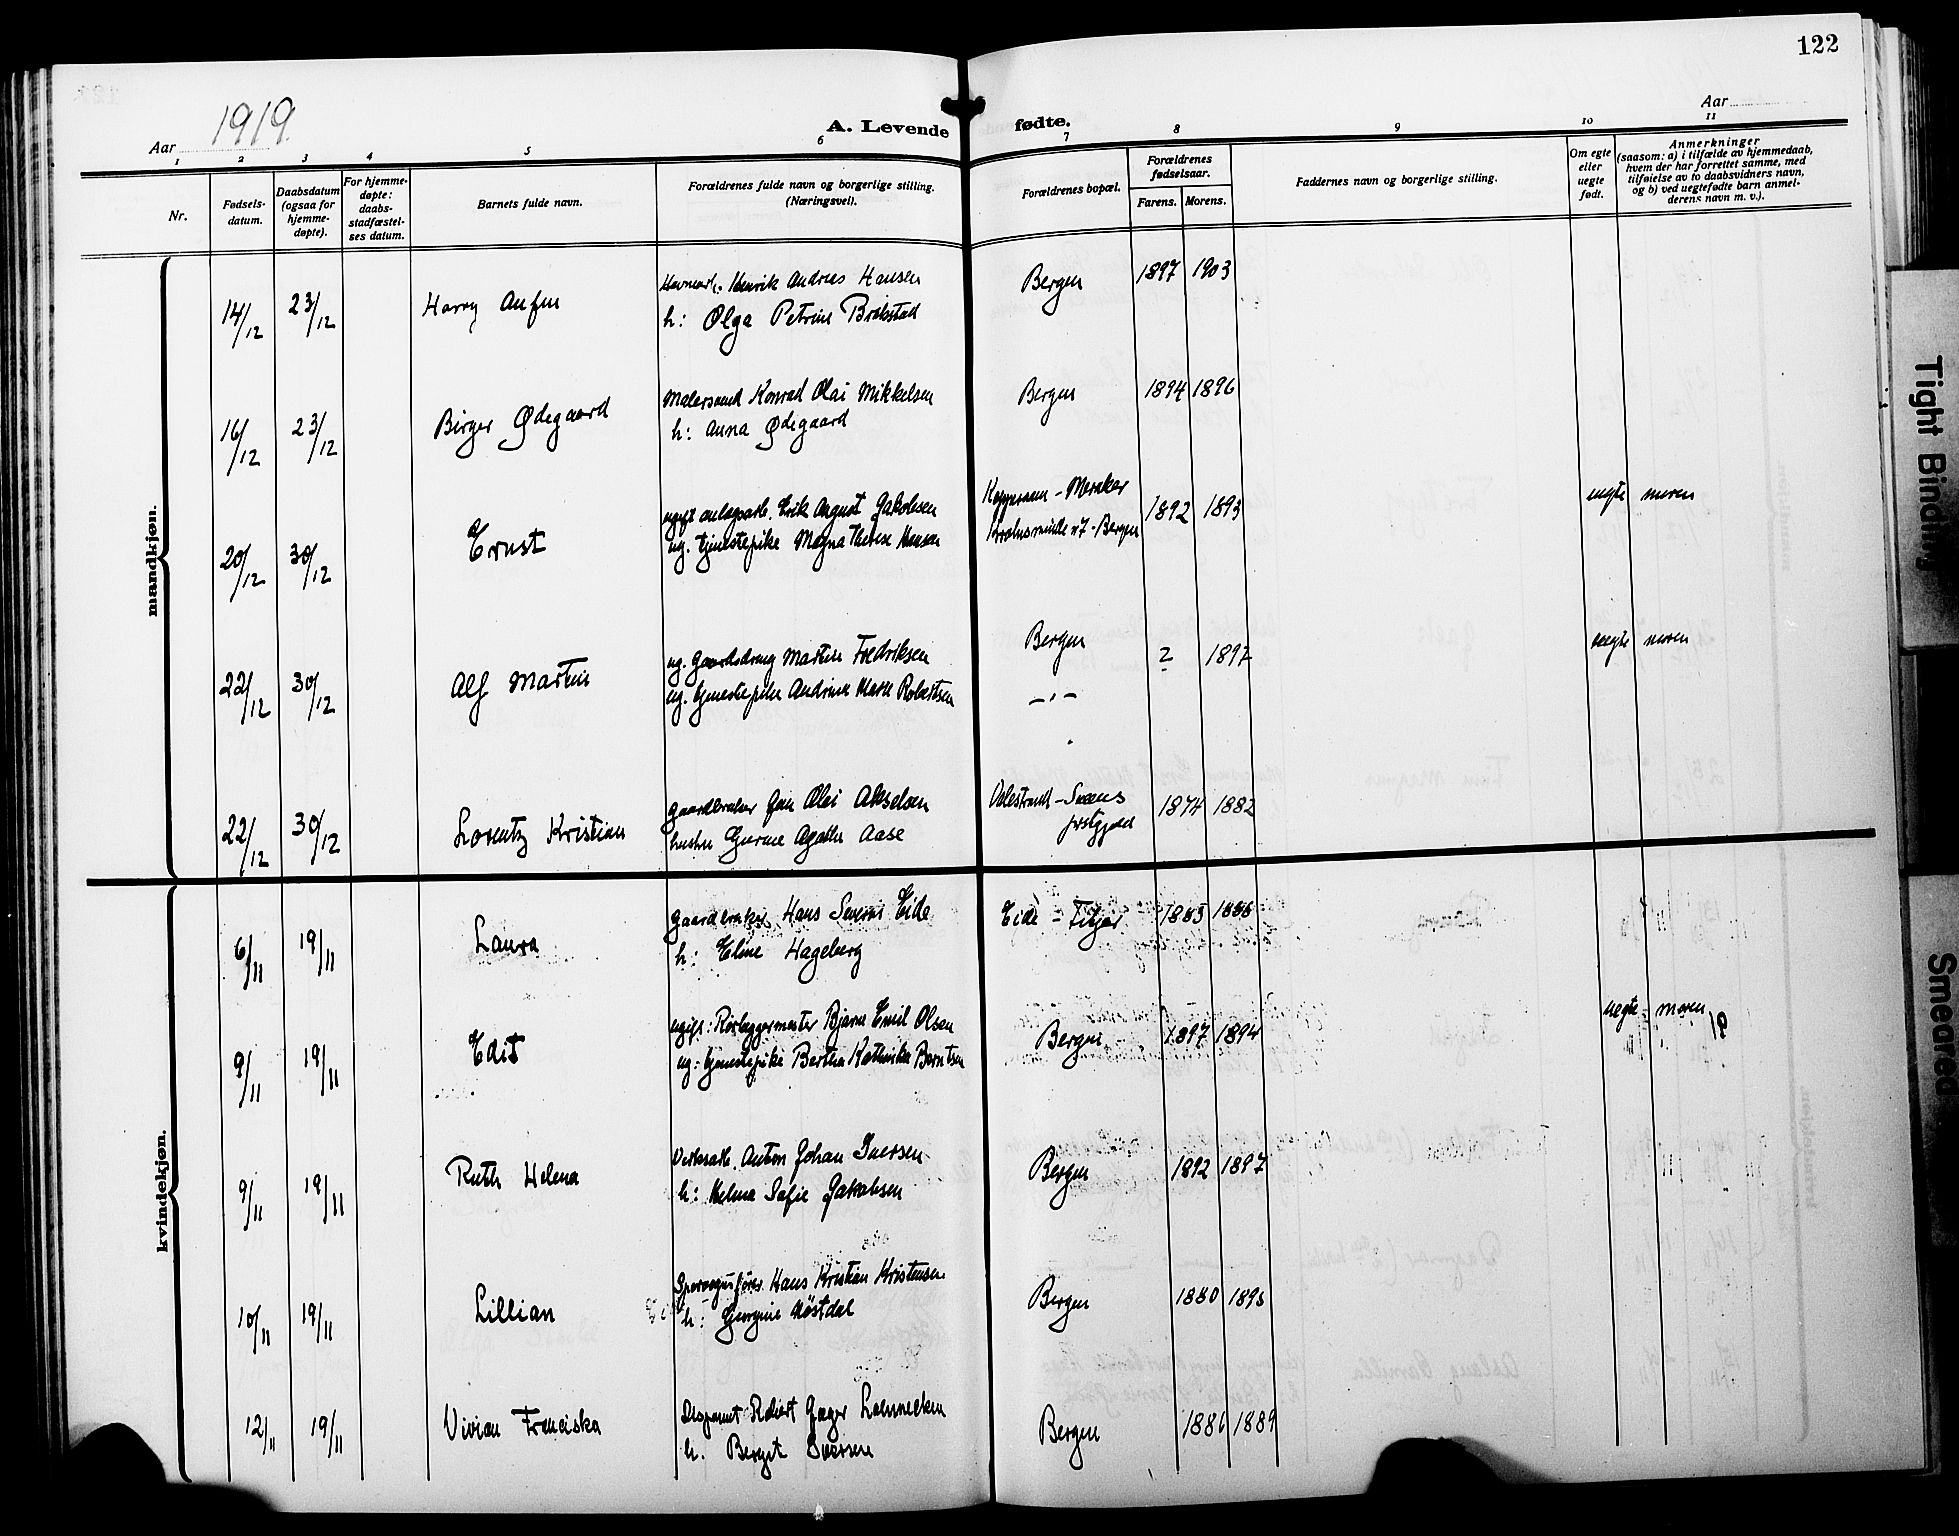 122
Aar 1919.
A. Levende fødte.
Aar
1 2 3 4 5 6 7 8 9 10 11
Nr.
Fødsels-
datum.
Daabsdatum
(ogsaa for
hjemme-
døpte).
For hjemme-
døpte:
daabs-
stadfæstel-
ses datum.
Barnets fulde navn.
Forældrenes fulde navn og borgerlige stilling.
(Næringsvei).
Forældrenes bopæl.
Forældrenes
fødselsaar.
Farens. Morens.
Faddernes navn og borgerlige stilling.
Om egte
eller
uegte
født.
Anmerkninger
(saasom: a) i tilfælde av hjemmedaab,
hvem der har forrettet samme, med
tilføielse av to daabsvidners navn,
og b) ved uegtefødte barn anmel-
derens navn m. v.).
mandkjøn.
Henrik Andreas Hansen Bergen 1897 1903
14/12 23/12 Harry
h: Olga Petrine
Malersvend Konrad Olai Mikkelsen Bergen 1894 1896
16/12 23/12 Birger Ødegaard h: Anna Ødegaard
ugift anlegsarb. Erik August Jakobsen - Meraker 1892 1893 uegte moren
20/12 30/12 Ernst ug. tjenestepike Magna Therese Hansen - Bergen
ug. Gaardsdreng Martin Fredriksen Bergen ? 1897 uegte moren
22/12 30/12 Alf Martin ug. tjenestepike Andrine Marie Robertsen -"-
Gaardbruker Olai Akselsen 1874 1882
22/12 30/12 Lorentz Kristian hustru Agathe Aase
kvindekjøn.
Gaardbruker Hans Severin Eide Eide - Fitjar 1883 1888
6/11 19/11 Laura h: Eline Hageberg
ugift: Rørlæggermester Bjarne Emil Olsen Bergen 1897 1894 uegte moren
9/11 19/11 Edit ug: tjenestepike Bertha Kathinka Berntsen
Verksarb. Anton Johan Iversen Bergen 1892 1897
9/11 19/11 Ruth Helena h: Helma Sofie Jakobsen
Sporvognsfører Hans Kristian Kristensen Bergen 1880 1895
10/11 19/11 Lillian h: Georgine Høstdal
Disponent Robert Jæger Bergen 1886 1889
12/11 19/11 Vivian Franciska h. Bergit Iversen
Tight Binding
Smeared